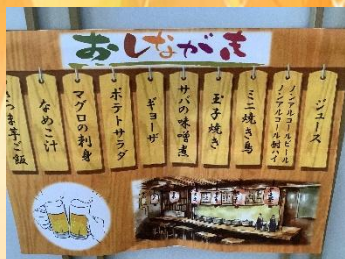 おしながき
ジュース
ノンアルコールビール
ノンアルコール酎ハイ
ミニ焼き鳥
玉子焼き
サバの味噌煮
ギョーザ
ポテトサラダ
マグロの刺身
なめこ汁
さつま芋ご飯